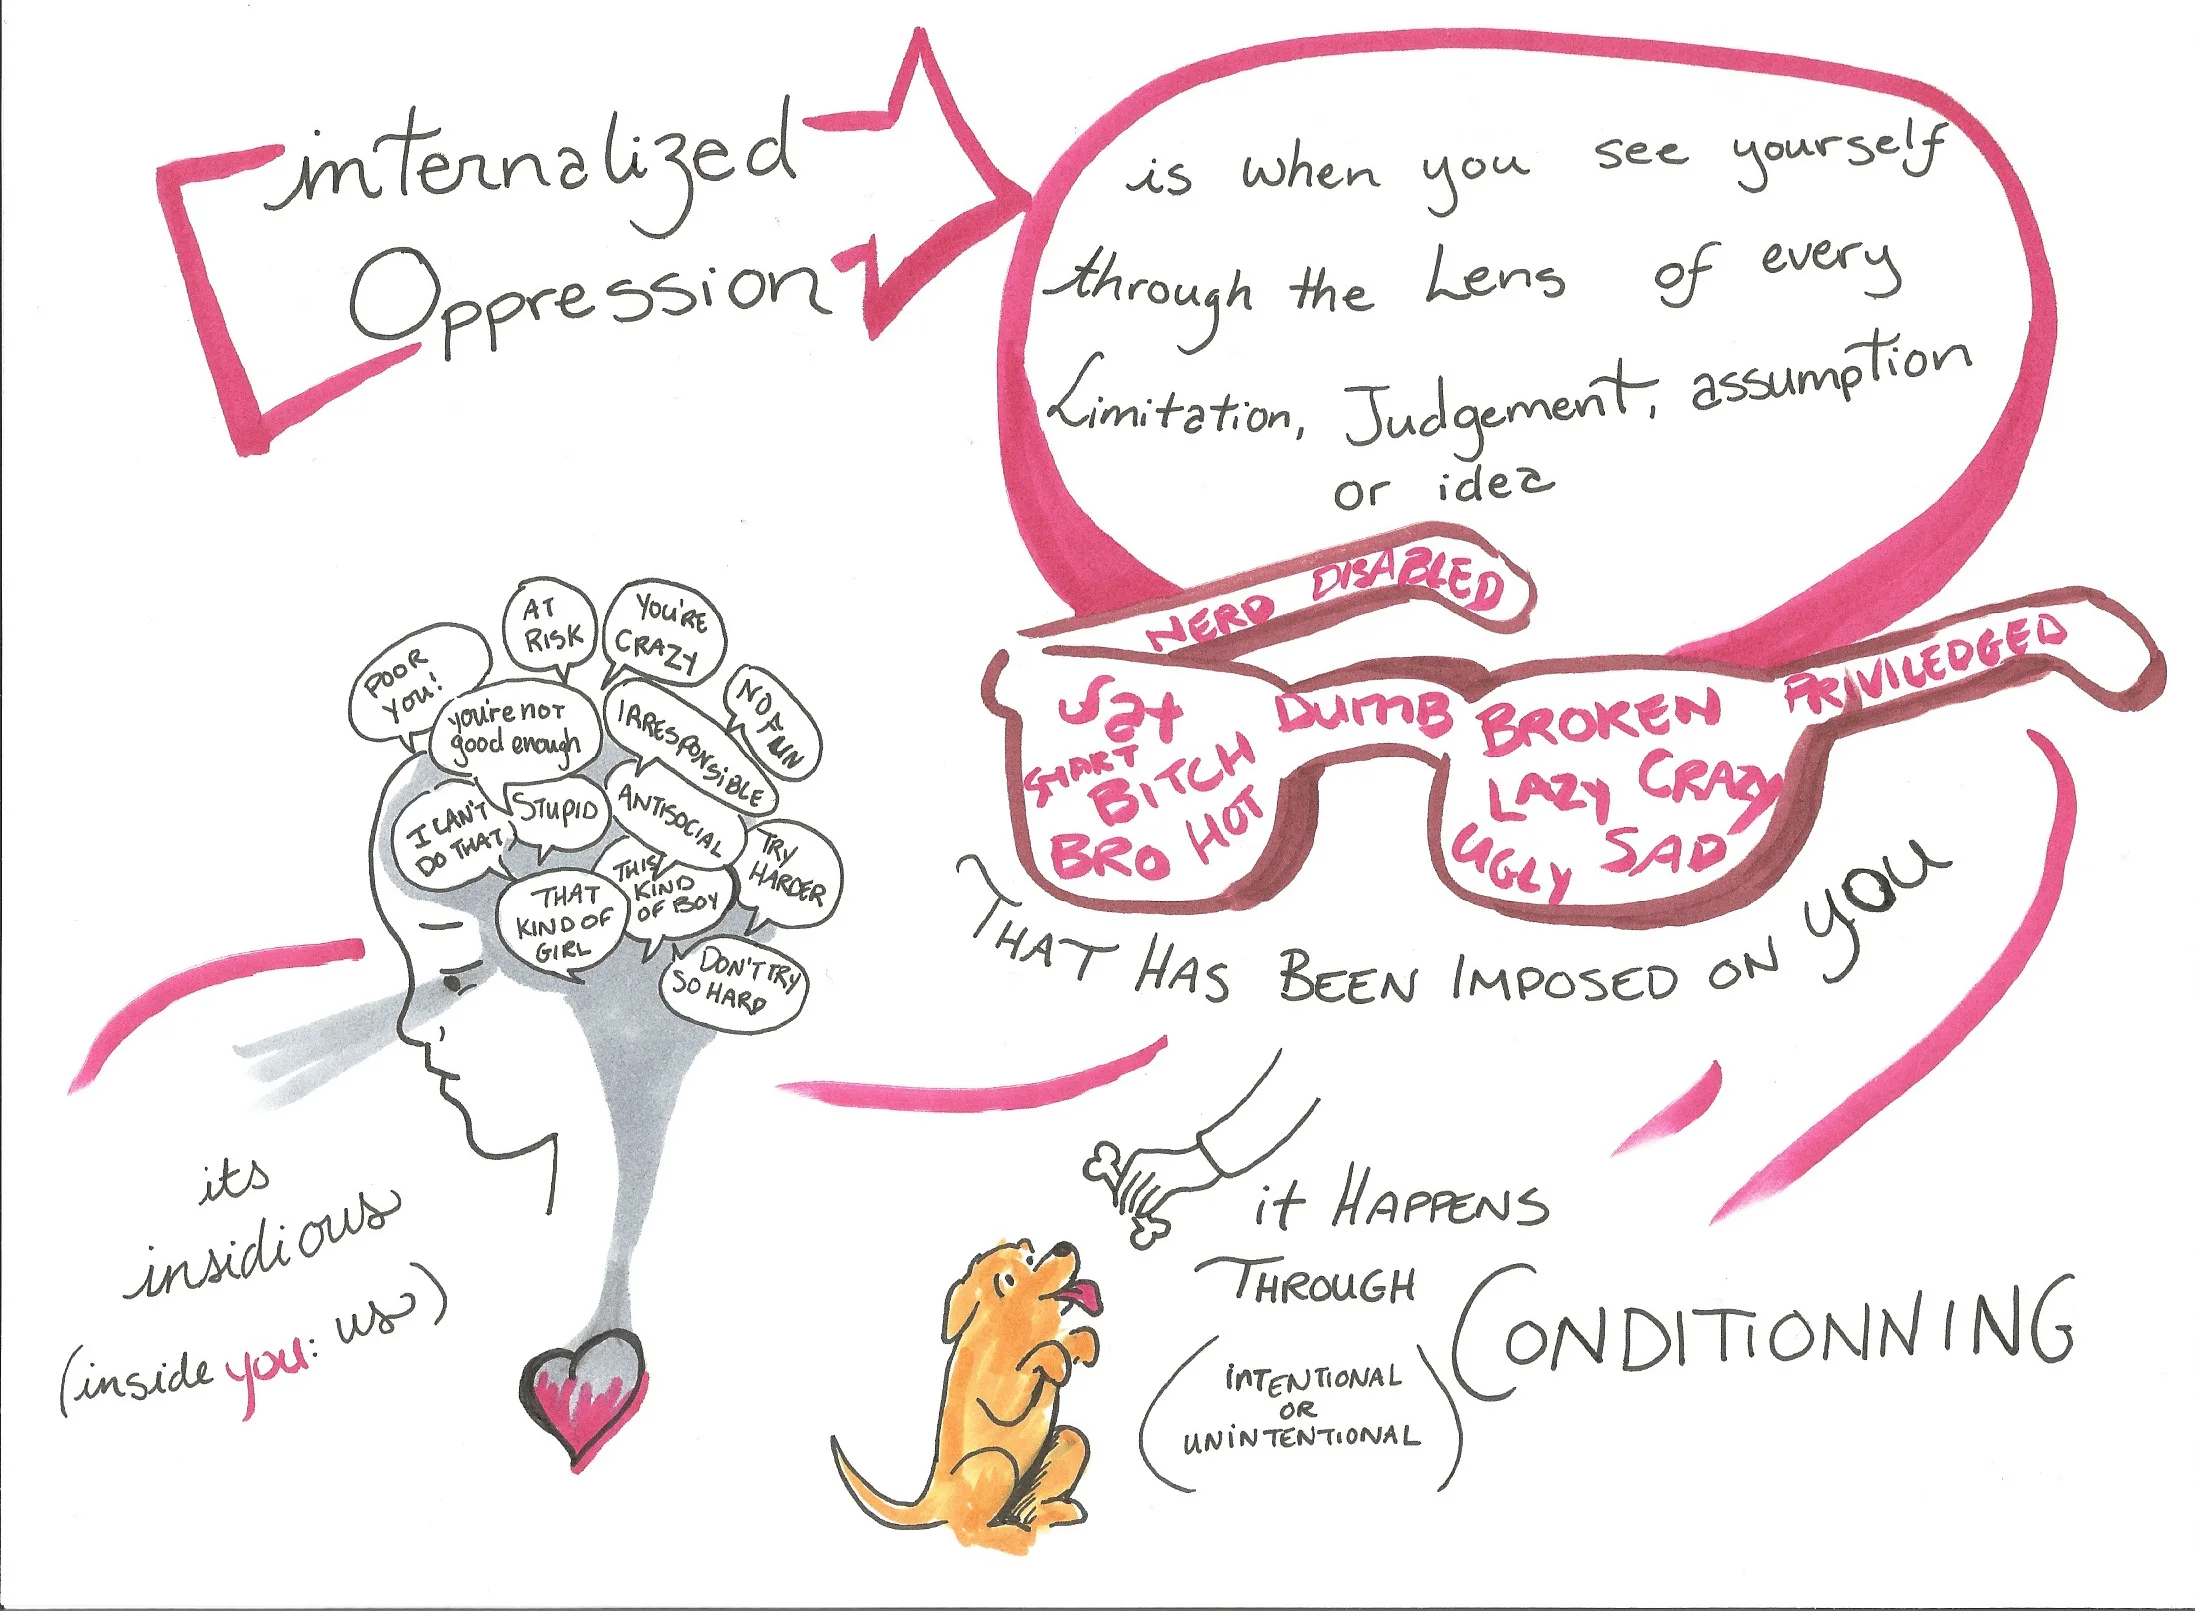 internalized
Oppression
is when you see yourself
through the Lens of every
Limitation, Judgement, assumption
or idea
NERD DISABLED
PRIVILEDGED
DUMB
SMART
BITCH
BRO HOT
BROKEN
LAZY CRAZY
UGLY SAD
THAT HAS BEEN IMPOSED ON YOU
POOR
YOU!
AT
RISK
YOU'RE
CRAZY
NO FUN
you're not
good enough
IRRESPONSIBLE
I CAN'T
DO THAT
STUPID
ANTISOCIAL
TRY
HARDER
THAT
KIND OF
GIRL
THIS
KIND
OF BOY
DON'T TRY
SO HARD
its
insidious
(inside you: us)
it HAPPENS
THROUGH
(INTENTIONAL
OR
UNINTENTIONAL)
CONDITIONNING